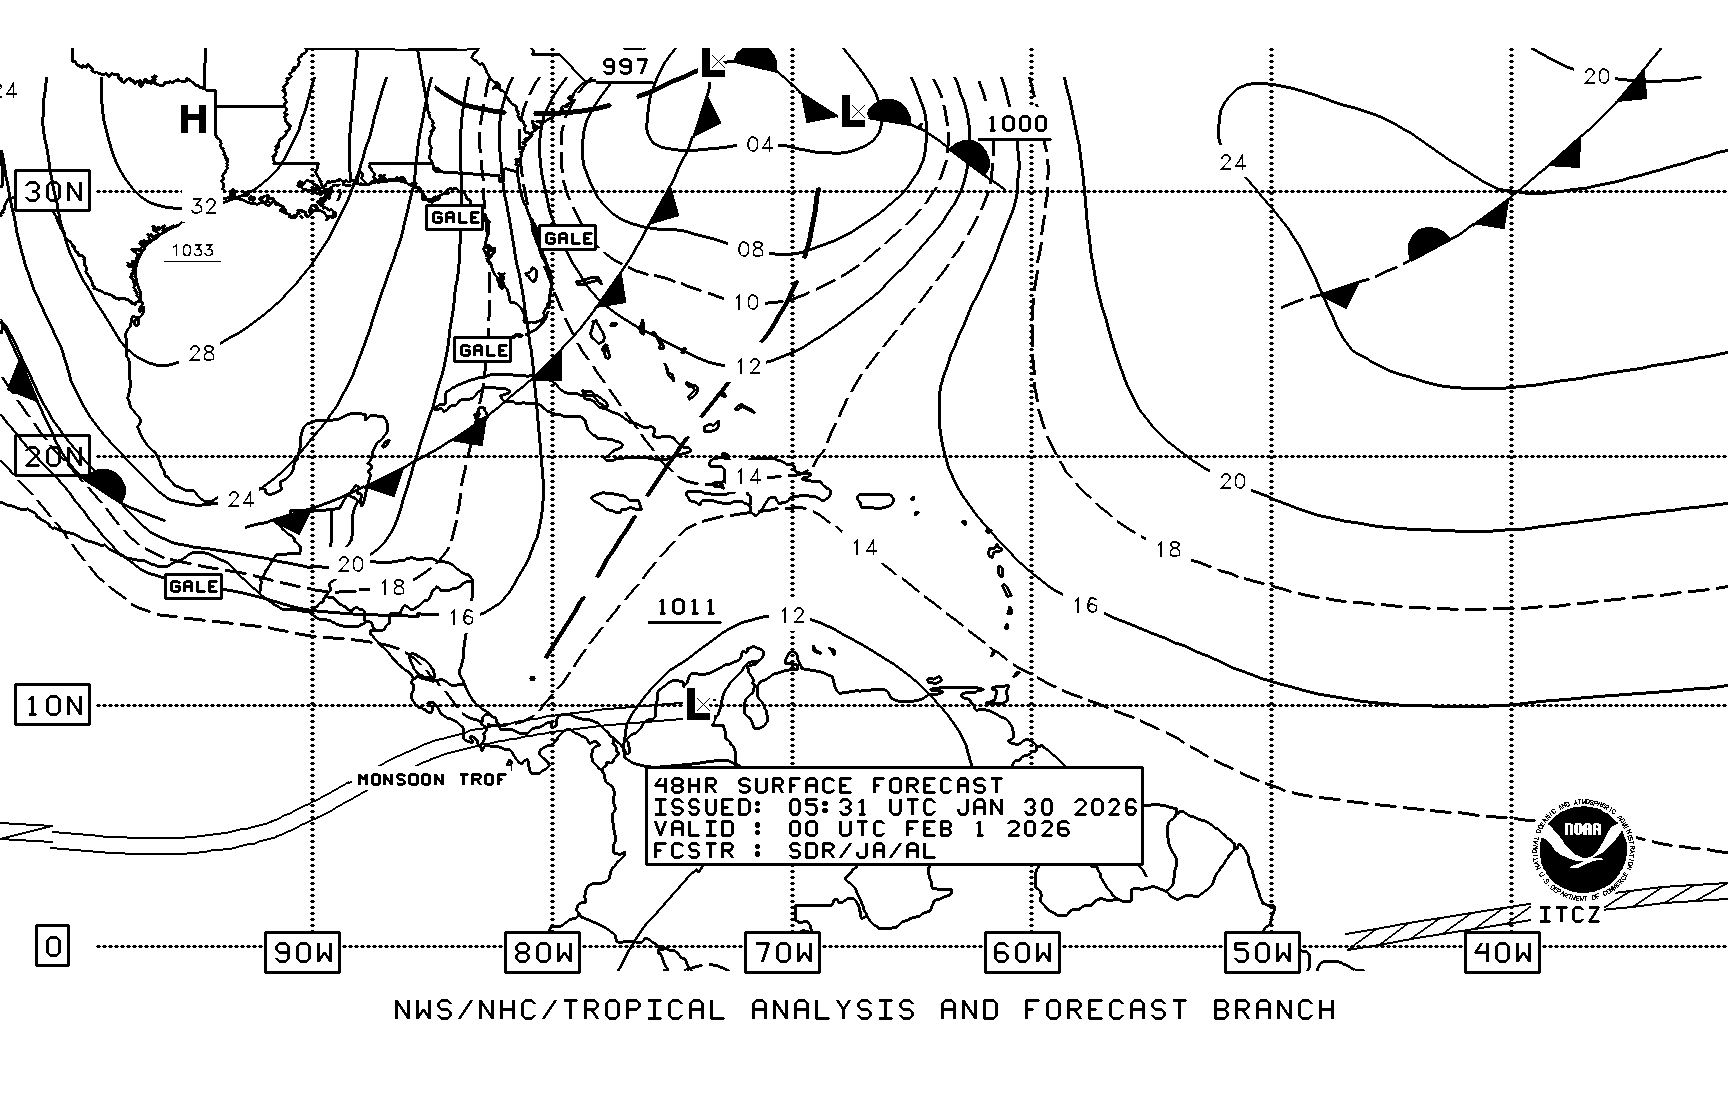 997
L
20
24
H
L
1000
04
24
30N
32
GALE
GALE
1033
08
10
28
GALE
12
20N
14
20
24
14
18
20
GALE
18
16
1011
12
16
10N
L
MONSOON TROF
48HR SURFACE FORECAST
ISSUED: 05:31 UTC JAN 30 2026
VALID : 00 UTC FEB 1 2026
FCSTR : SDR/JA/AL
NATIONAL OCEANIC AND ATMOSPHERIC ADMINISTRATION
NOAA
U.S. DEPARTMENT OF COMMERCE
ITCZ
0
90W
80W
70W
60W
50W
40W
NWS/NHC/TROPICAL ANALYSIS AND FORECAST BRANCH